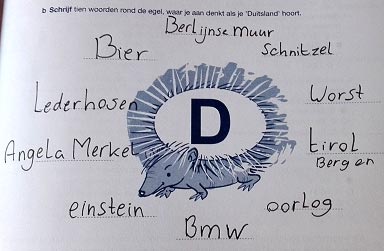 b Schrijf tien woorden rond de egel, waar je aan denkt als je 'Duitsland' hoort.
Berlijnse muur
Bier
Schnitzel
Lederhosen
Worst
D
Angela Merkel
tirol
Bergen
einstein
oorlog
Bmw